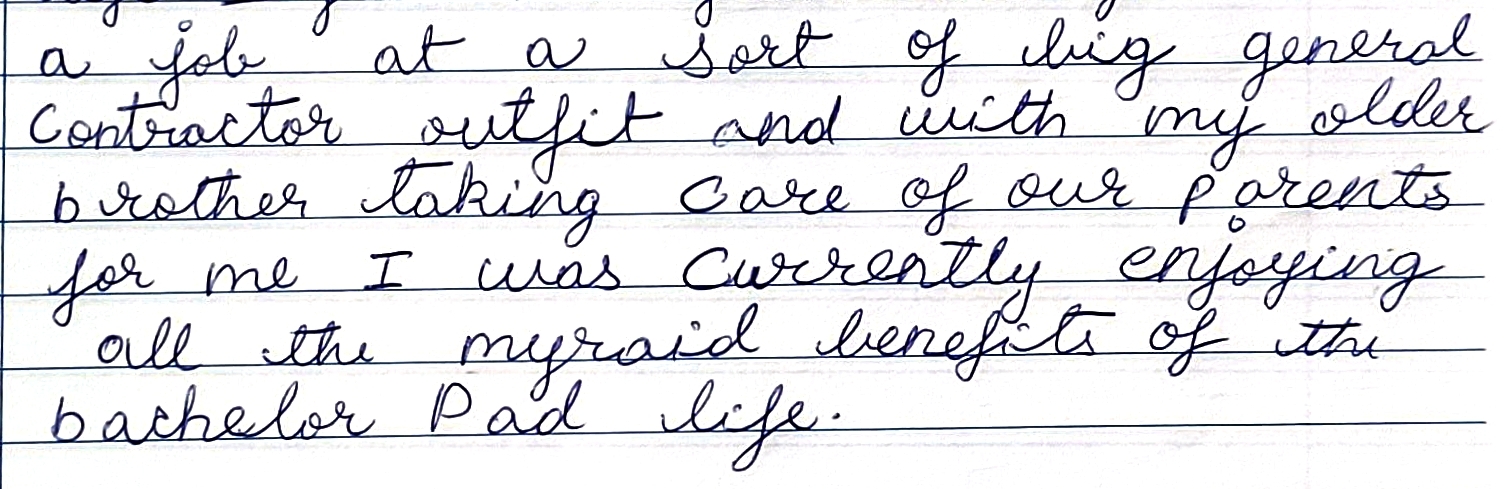 a job at a sort of big general
contractor outfit and with my older
brother taking care of our parents
for me I was currently enjoying
all the myraid benefits of the
bachelor Pad life.